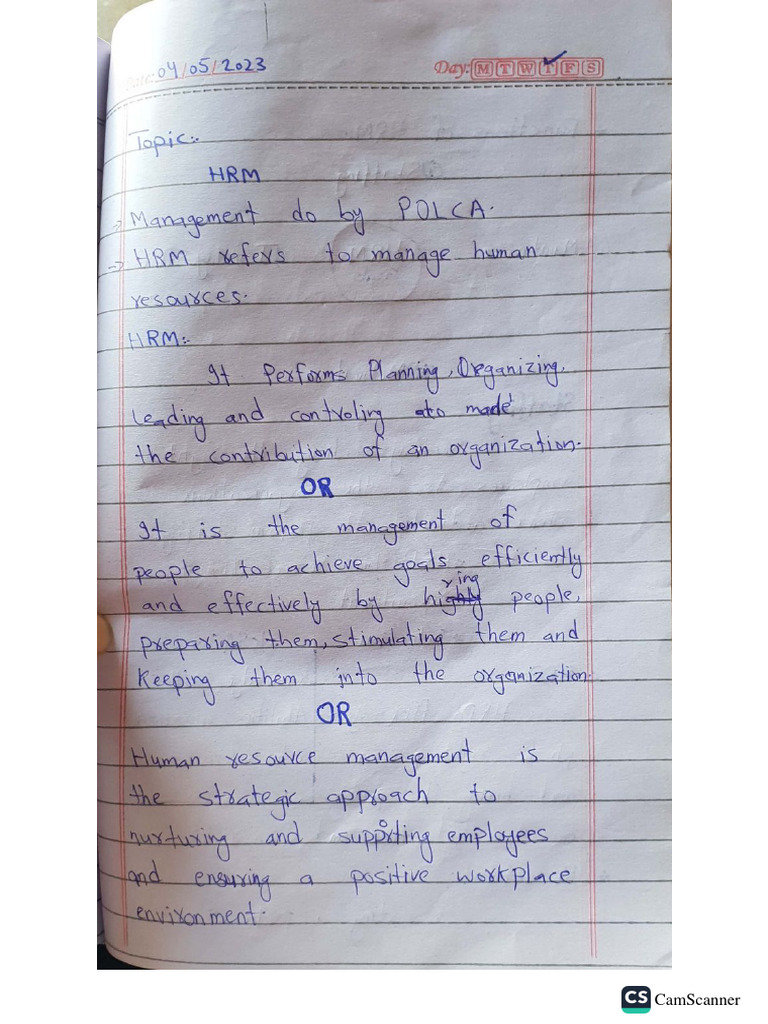 Date: 04/05/2023 Day: M T W T F S
Topic:-
HRM
-> Management do by POLCA.
-> HRM refers to manage human
resources.
HRM:-
It Performs Planning, Organizing,
leading and controling to made
the contribution of an organization.
OR
It is the management of
people to achieve goals efficiently
and effectively by hiring people,
preparing them, stimulating them and
Keeping them into the organization.
OR
Human resource management is
the strategic approach to
nurturing and supporting employees
and ensuring a positive workplace
environment.
CS CamScanner